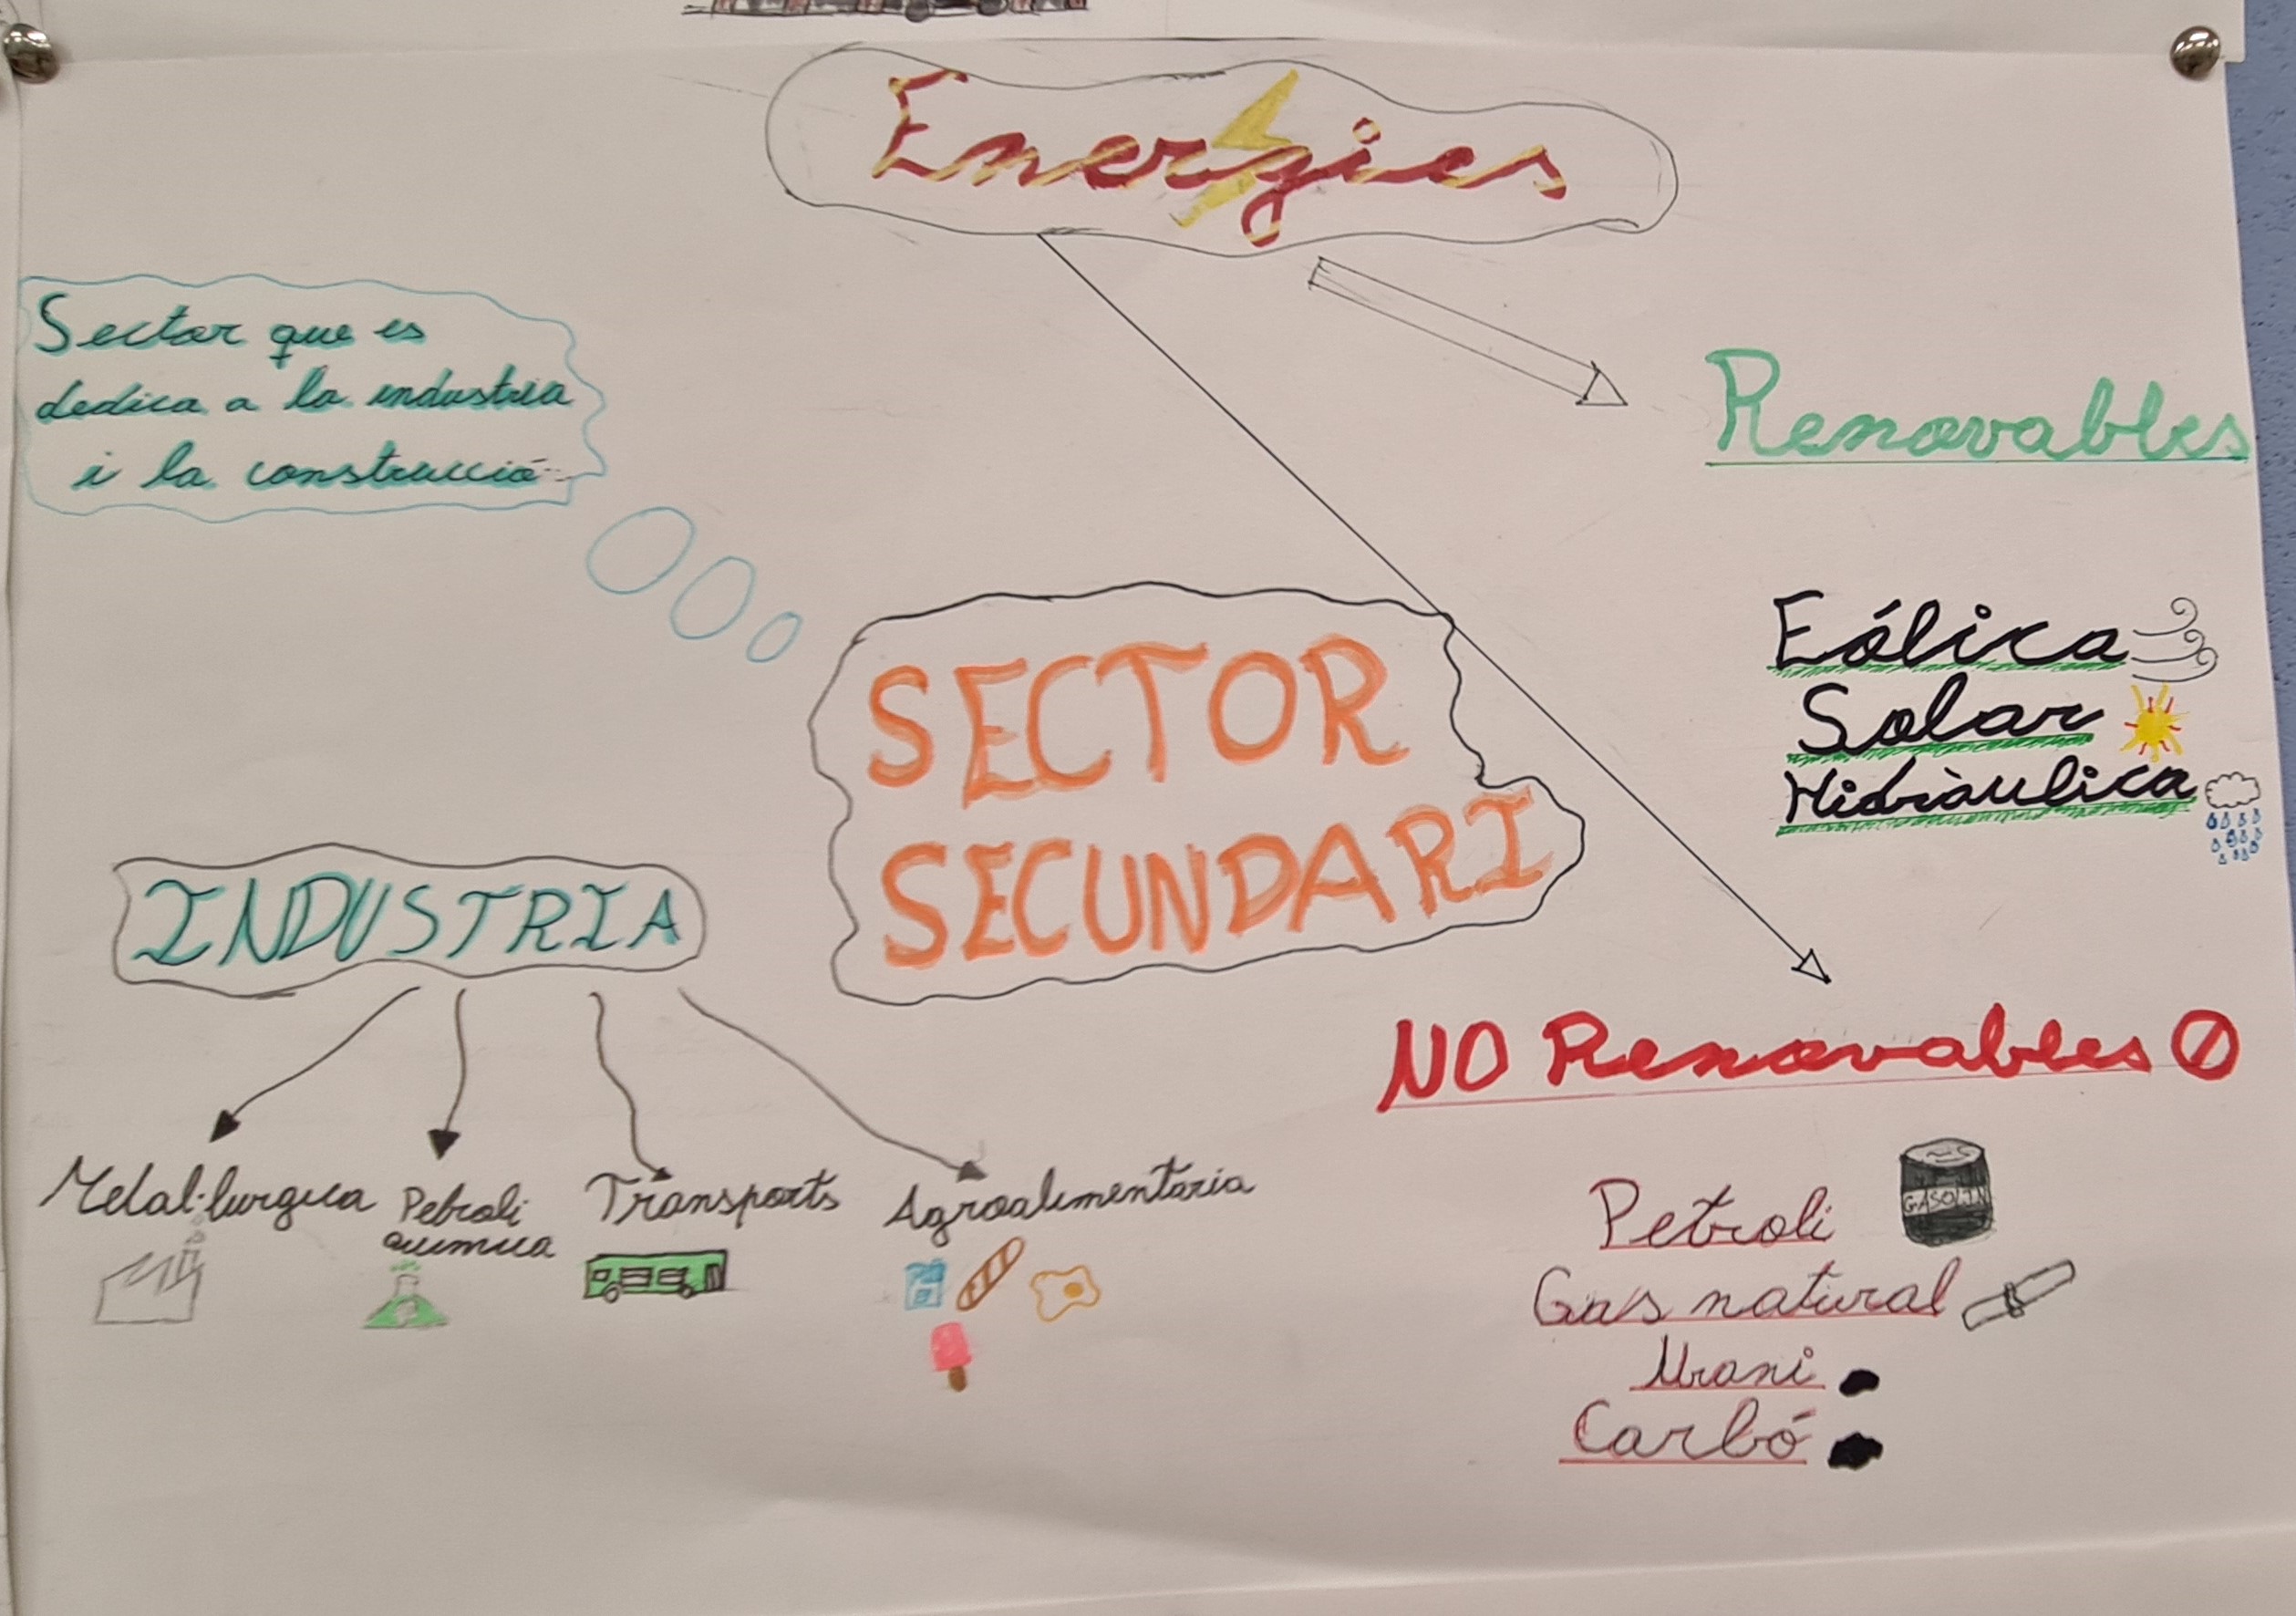 Energies
Sector que es
dedica a la industria
i la construcció
Renovables
Eólica
Solar
Hidràulica
SECTOR
SECUNDARI
INDUSTRIA
Metal·lurgica
Petroli
quimica
Transports
Agroalimentaria
NO Renovables
Petroli
GASOLIN
Gas natural
Urani
Carbó